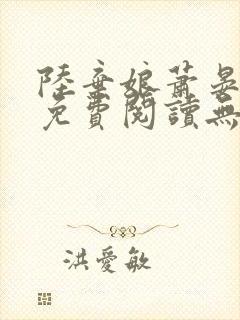 陸棄娘蕭晏
免費閱讀無
洪愛敏